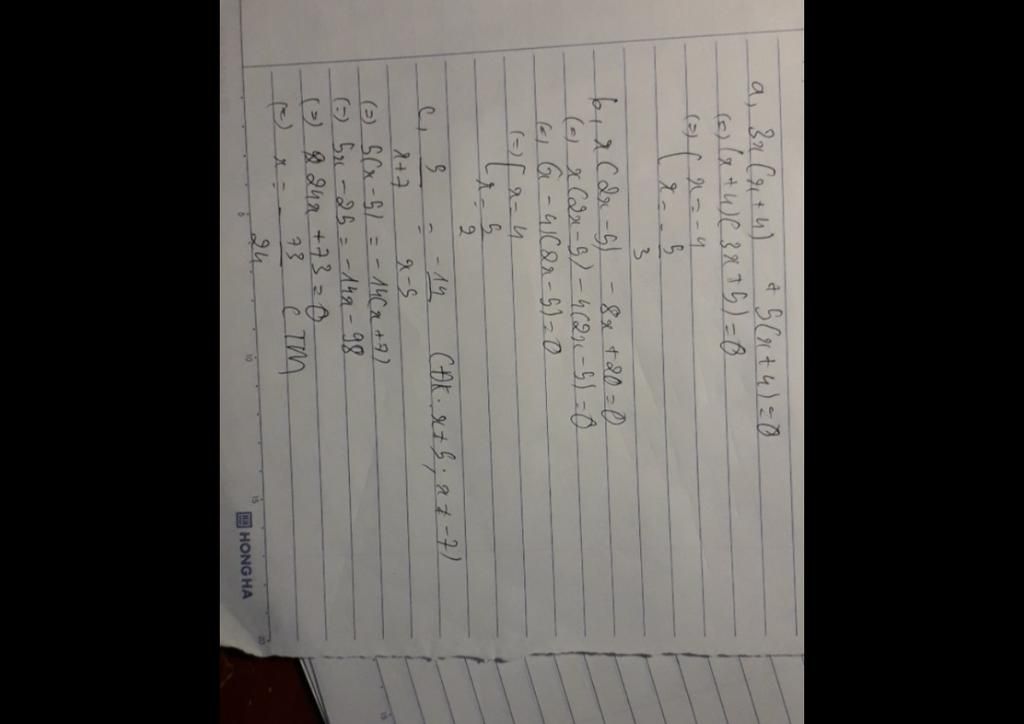 a, 3x(x+4) + 5(x+4)=0
(=) (x+4)(3x+5)=0
(=) ( x=-4
( x=-5/3
b, x(2x-5) - 8x+20=0
(=) x(2x-5) - 4(2x-5)=0
(=) (x-4)(2x-5)=0
(=) ( x=4
( x=5/2
c, 5/x+7 = -14/x-5 (ĐK: x≠5; x≠-7)
(=) 5(x-5) = -14(x+7)
(=) 5x-25=-14x-98
(=) 24x+73=0
(=) x=-73/24 (TM
5 10 15 20
HONG HA
15